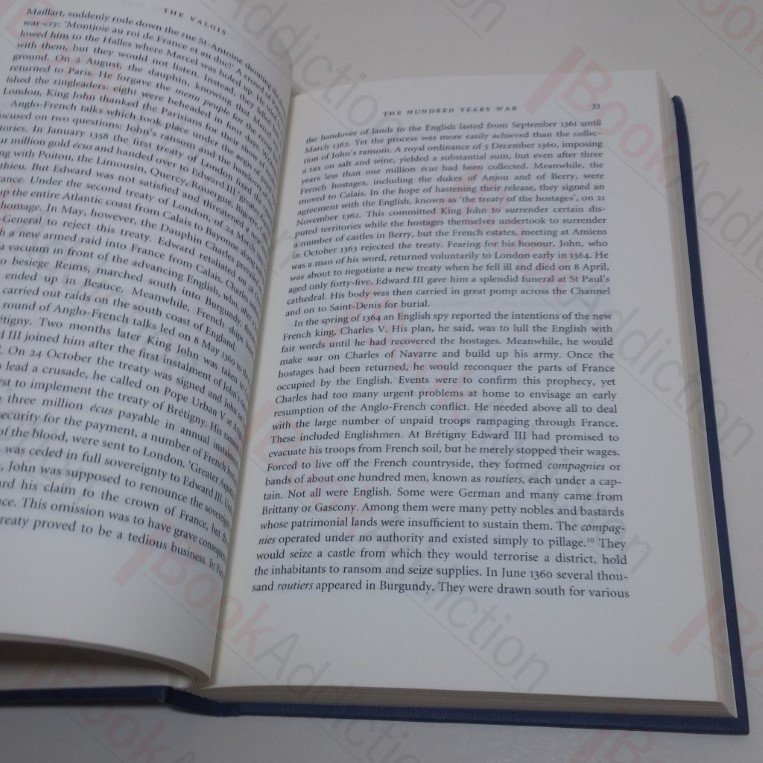 THE VALOIS
Maillart, suddenly rode down the rue St-Antoine shouting
war-cry: 'Montjoie au roi de France et au duc!' A crowd
lowed him to the Halles where Marcel was holed up. He
with them, but they would not listen. Instead, they
ground. On 2 August, the dauphin, knowing that
returned to Paris. He forgave the menu peuple
ished the ringleaders: eight were beheaded in four
London, King John thanked the Parisians for
Anglo-French talks which took place under the aegis
ocused on two questions: John's ransom and the
tories. In January 1358 the first treaty of London fixed
ur million gold écus and handed over to Edward III
ng with Poitou, the Limousin, Quercy, Rouergue, Bigorre
thieu. But Edward was not satisfied and threatened
ance. Under the second treaty of London, of
up the entire Atlantic coast from Calais to Bayonne
homage. In May, however, the Dauphin Charles
-General to reject this treaty. Edward retaliated
h a new armed raid into France from Calais.
a vacuum in front of the advancing English, who
o besiege Reims, marched south into Burgundy
ended up in Beauce. Meanwhile, French ships
carried out raids on the south coast of England.
round of Anglo-French talks led on 8 May 1360 to the
étigny. Two months later King John was taken
d III joined him after the first instalment of
d. On 24 October the treaty was signed and John
o lead a crusade, he called on Pope Urban V at
st to implement the treaty of Brétigny. His
three million écus payable in annual
security for the payment, a number of French
of the blood, were sent to London. 'Greater
was ceded in full sovereignty to Edward III
, John was supposed to renounce the sovereignty
ard his claim to the crown of France, but
nce. This omission was to have grave
reaty proved to be a tedious business. In
THE HUNDRED YEARS WAR 35
the handover of lands to the English lasted from September 1361 until
March 1362. Yet the process was more easily achieved than the collec-
tion of John's ransom. A royal ordinance of 5 December 1360, imposing
a tax on salt and wine, yielded a substantial sum, but even after three
years less than one million écus had been collected. Meanwhile, the
French hostages, including the dukes of Anjou and of Berry, were
moved to Calais. In the hope of hastening their release, they signed an
agreement with the English, known as 'the treaty of the hostages', on 21
November 1362. This committed King John to surrender certain dis-
puted territories while the hostages themselves undertook to surrender
a number of castles in Berry, but the French estates, meeting at Amiens
in October 1363 rejected the treaty. Fearing for his honour, John, who
was a man of his word, returned voluntarily to London early in 1364. He
was about to negotiate a new treaty when he fell ill and died on 8 April,
aged only forty-five. Edward III gave him a splendid funeral at St Paul's
cathedral. His body was then carried in great pomp across the Channel
and on to Saint-Denis for burial.
In the spring of 1364 an English spy reported the intentions of the new
French king, Charles V. His plan, he said, was to lull the English with
fair words until he had recovered the hostages. Meanwhile, he would
make war on Charles of Navarre and build up his army. Once the
hostages had been returned, he would reconquer the parts of France
occupied by the English. Events were to confirm this prophecy, yet
Charles had too many urgent problems at home to envisage an early
resumption of the Anglo-French conflict. He needed above all to deal
with the large number of unpaid troops rampaging through France.
These included Englishmen. At Brétigny Edward III had promised to
evacuate his troops from French soil, but he merely stopped their wages.
Forced to live off the French countryside, they formed compagnies or
bands of about one hundred men, known as routiers, each under a cap-
tain. Not all were English. Some were German and many came from
Brittany or Gascony. Among them were many petty nobles and bastards
whose patrimonial lands were insufficient to sustain them. The compag-
nies operated under no authority and existed simply to pillage.¹⁹ They
would seize a castle from which they would terrorise a district, hold
the inhabitants to ransom and seize supplies. In June 1360 several thou-
sand routiers appeared in Burgundy. They were drawn south for various
BookAddiction